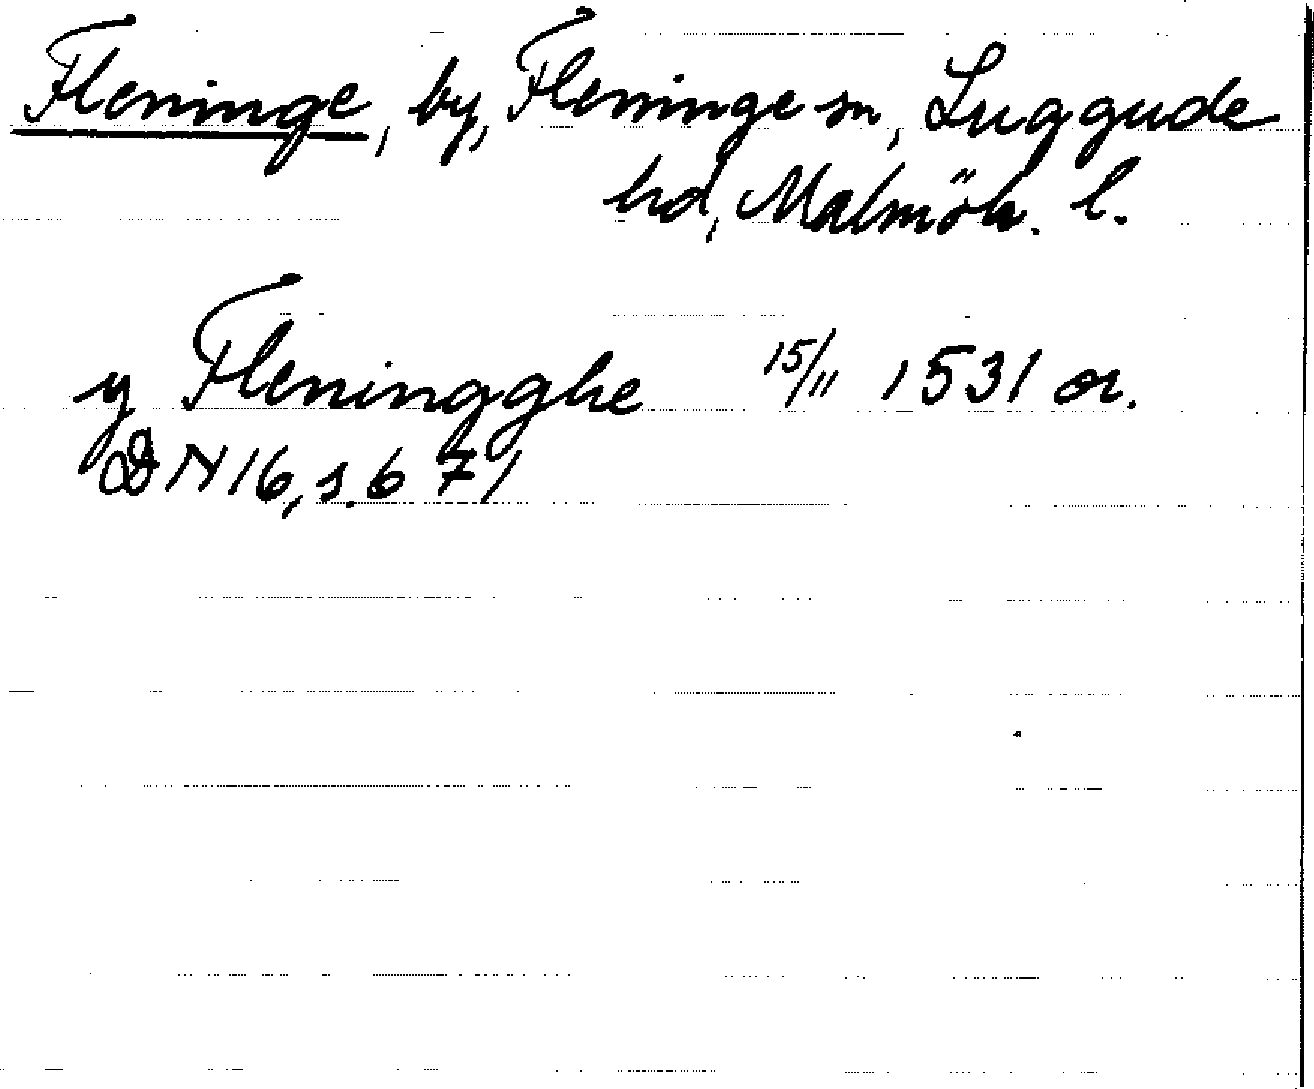 Fleninge, by, Fleninge sn, Luggude
hd, Malmöh. l.
y Fleningghe 15/11 1531 or.
DN 16, s. 671